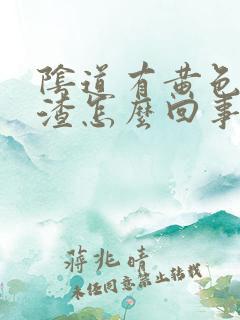 陰道有黃色
渣怎麼回事
蔣兆晴
未经同意禁止转载